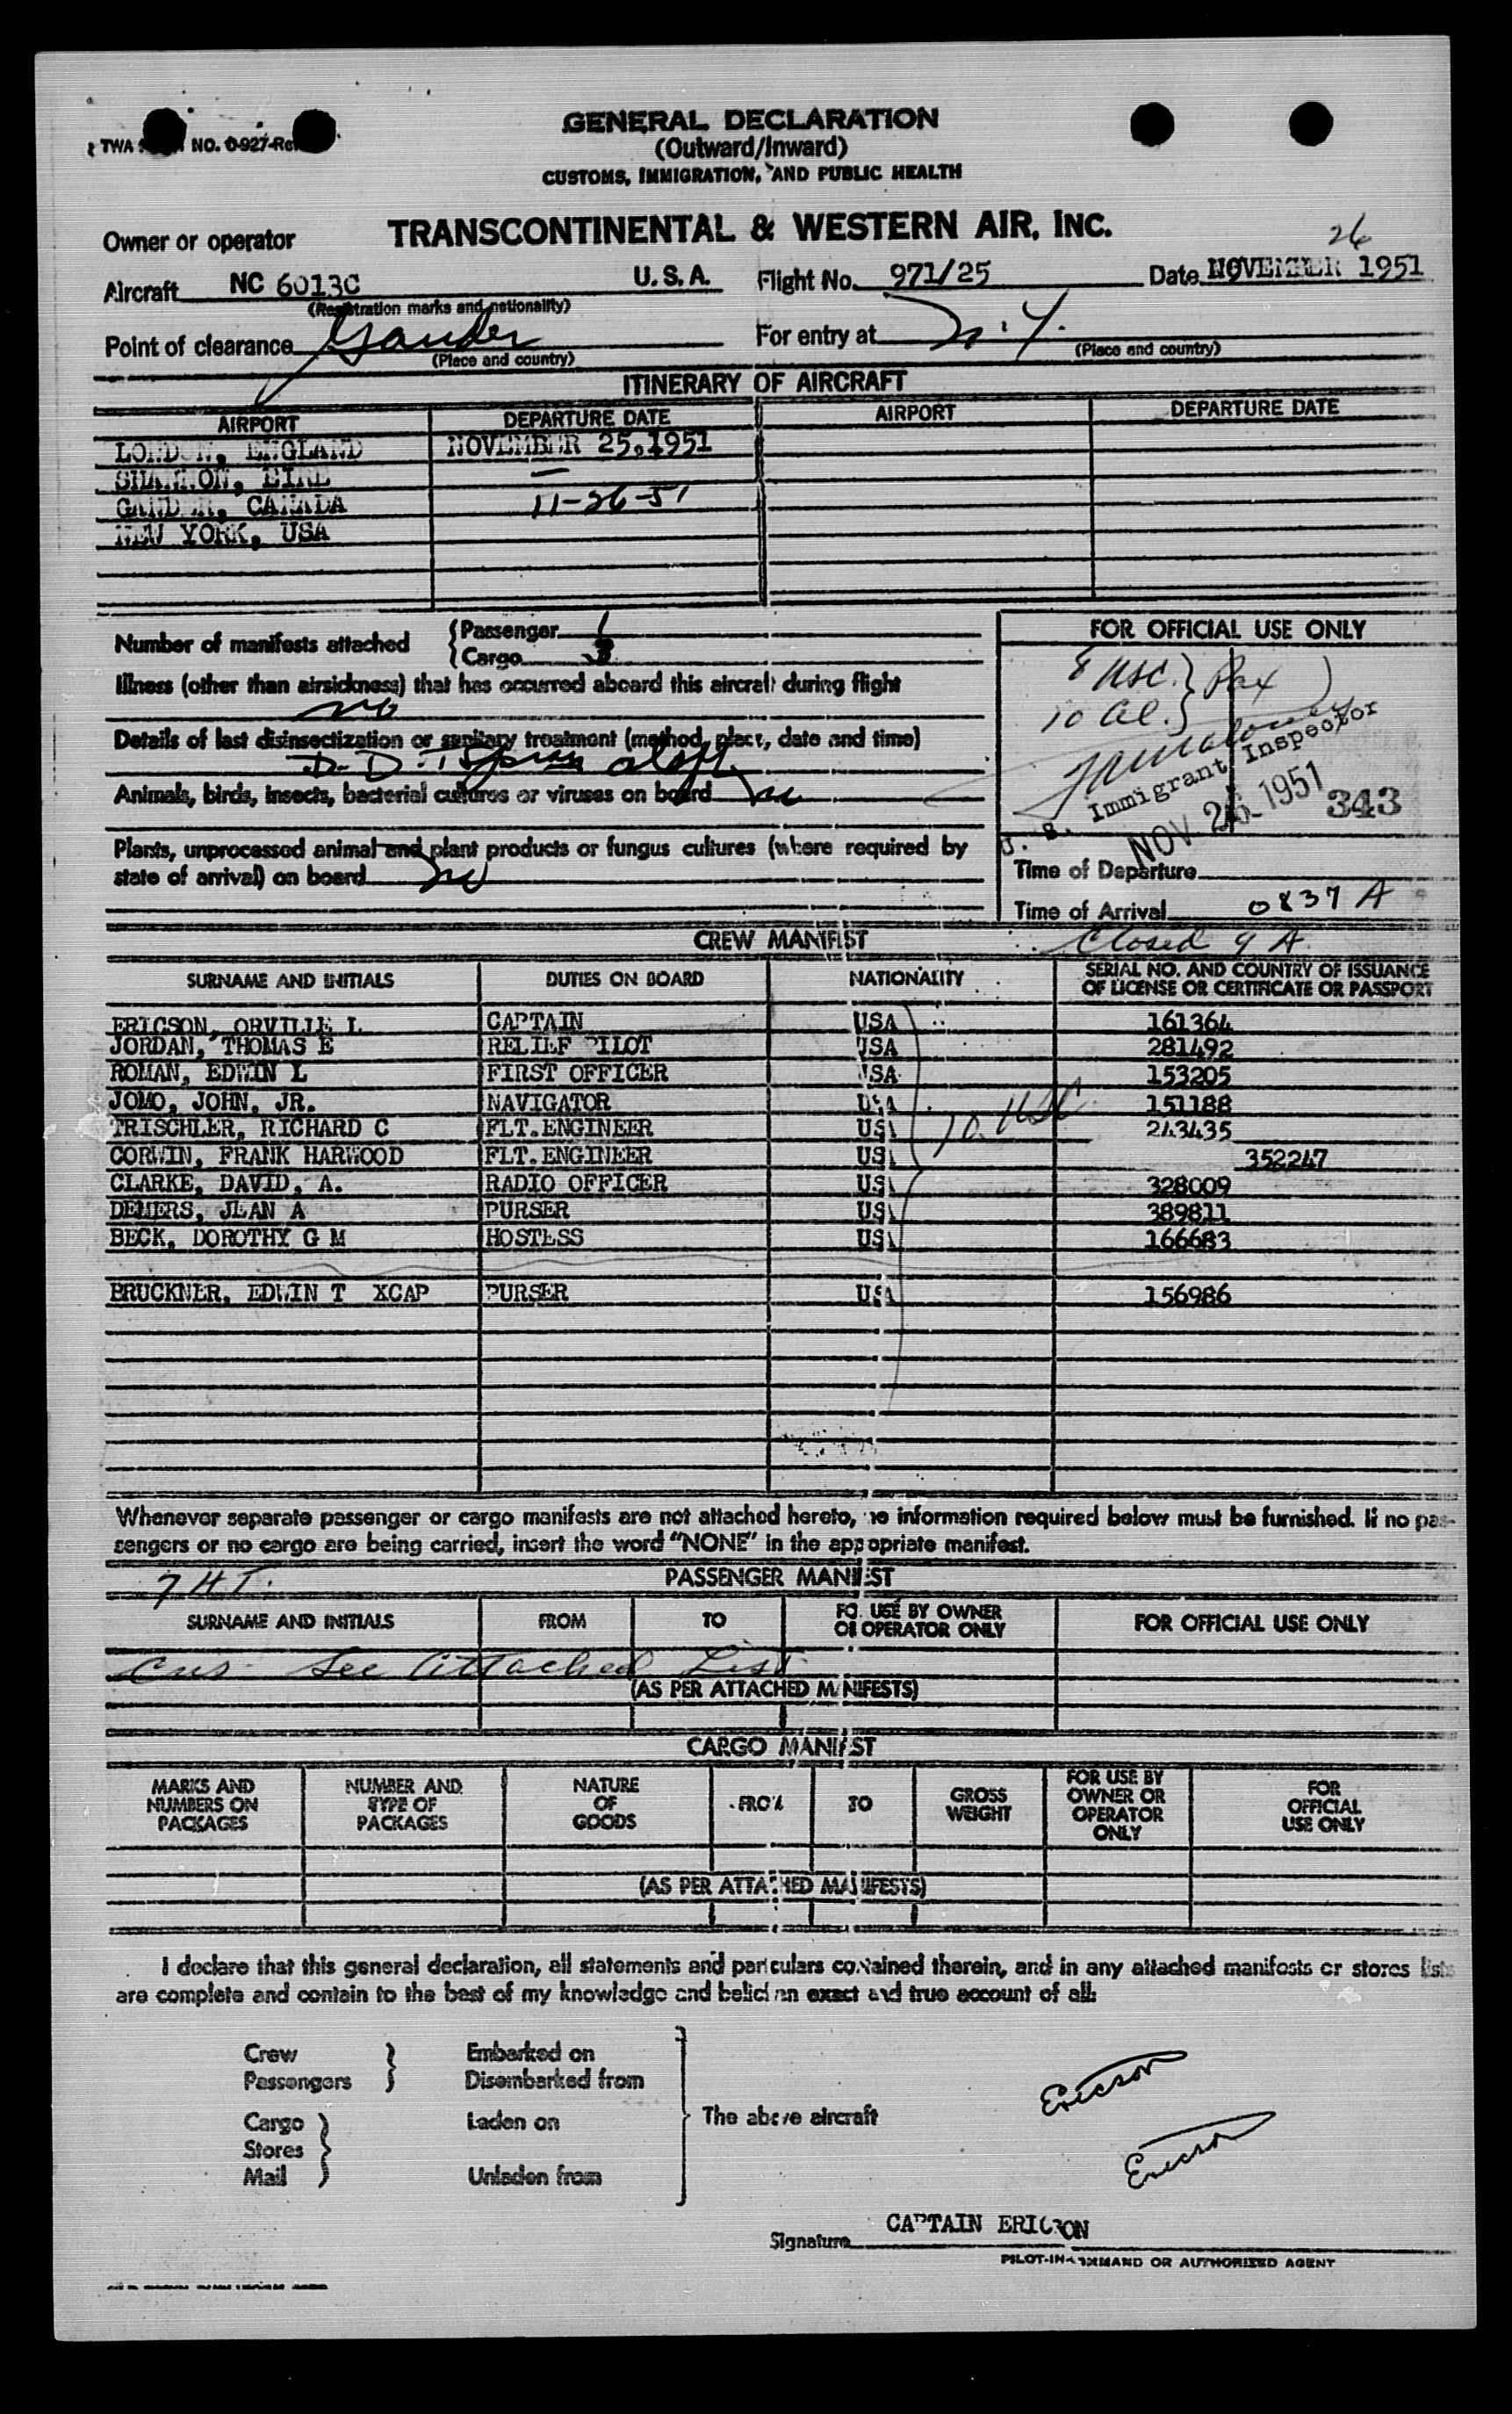 GENERAL DECLARATION
(Outward/Inward)
TWA NO. 0-927-Rev
CUSTOMS, IMMIGRATION, AND PUBLIC HEALTH
Owner or operator TRANSCONTINENTAL & WESTERN AIR, INC.
26
Aircraft NC 6013C U.S.A. Flight No. 971/25 Date NOVEMBER 1951
(Registration marks and nationality)
Point of clearance Gander For entry at N.Y.
(Place and country) (Place and country)
ITINERARY OF AIRCRAFT
AIRPORT DEPARTURE DATE AIRPORT DEPARTURE DATE
LONDON, ENGLAND NOVEMBER 25,1951
SHANNON, EIRE —
GANDER, CANADA 11-26-51
NEW YORK, USA
Number of manifests attached {Passenger 1
{Cargo
FOR OFFICIAL USE ONLY
8 USC. } Pax
10 Al. }
Illness (other than airsickness) that has occurred aboard this aircraft during flight
no
Details of last disinsectization or sanitary treatment (method, place, date and time)
D.D.T. Spray aloft
U. S. Immigrant Inspector
NOV 26 1951 343
Animals, birds, insects, bacterial cultures or viruses on board no
Plants, unprocessed animal and plant products or fungus cultures (where required by
state of arrival) on board no
Time of Departure
Time of Arrival 0837 A
Closed 9 A.
CREW MANIFEST
SURNAME AND INITIALS DUTIES ON BOARD NATIONALITY SERIAL NO. AND COUNTRY OF ISSUANCE OF LICENSE OR CERTIFICATE OR PASSPORT
ERICSON, ORVILLE L CAPTAIN USA 161364
JORDAN, THOMAS E RELIEF PILOT USA 281492
ROMAN, EDWIN L FIRST OFFICER USA 153205
JOMO, JOHN, JR. NAVIGATOR USA 151188
TRISCHLER, RICHARD C FLT.ENGINEER USA 243435
10 USC
CORWIN, FRANK HARWOOD FLT.ENGINEER USA 352247
CLARKE, DAVID, A. RADIO OFFICER USA 328009
DEMERS, JEAN A PURSER USA 389811
BECK, DOROTHY G M HOSTESS USA 166683
BRUCKNER, EDWIN T XCAP PURSER USA 156986
Whenever separate passenger or cargo manifests are not attached hereto, the information required below must be furnished. If no pas-
sengers or no cargo are being carried, insert the word "NONE" in the appropriate manifest.
PASSENGER MANIFEST
SURNAME AND INITIALS FROM TO FOR USE BY OWNER OR OPERATOR ONLY FOR OFFICIAL USE ONLY
See Attached List
(AS PER ATTACHED MANIFESTS)
CARGO MANIFEST
MARKS AND NUMBERS ON PACKAGES NUMBER AND TYPE OF PACKAGES NATURE OF GOODS FROM TO GROSS WEIGHT FOR USE BY OWNER OR OPERATOR ONLY FOR OFFICIAL USE ONLY
(AS PER ATTACHED MANIFESTS)
I declare that this general declaration, all statements and particulars contained therein, and in any attached manifests or stores lists
are complete and contain to the best of my knowledge and belief an exact and true account of all:
Crew } Embarked on
Passengers } Disembarked from
Cargo } Laden on The above aircraft
Stores }
Mail } Unladen from
Ericson
Ericson
Signature CAPTAIN ERICSON
PILOT-IN-COMMAND OR AUTHORIZED AGENT